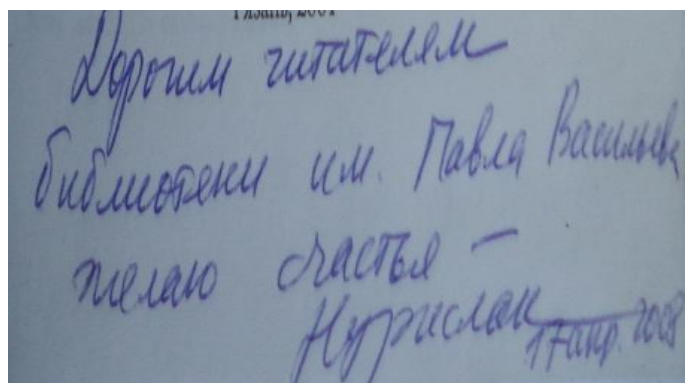 Рязань, 2001
Дорогим читателям
библиотеки им. Павла Васильева
желаю счастья —
Нурислан
17 апр. 2008